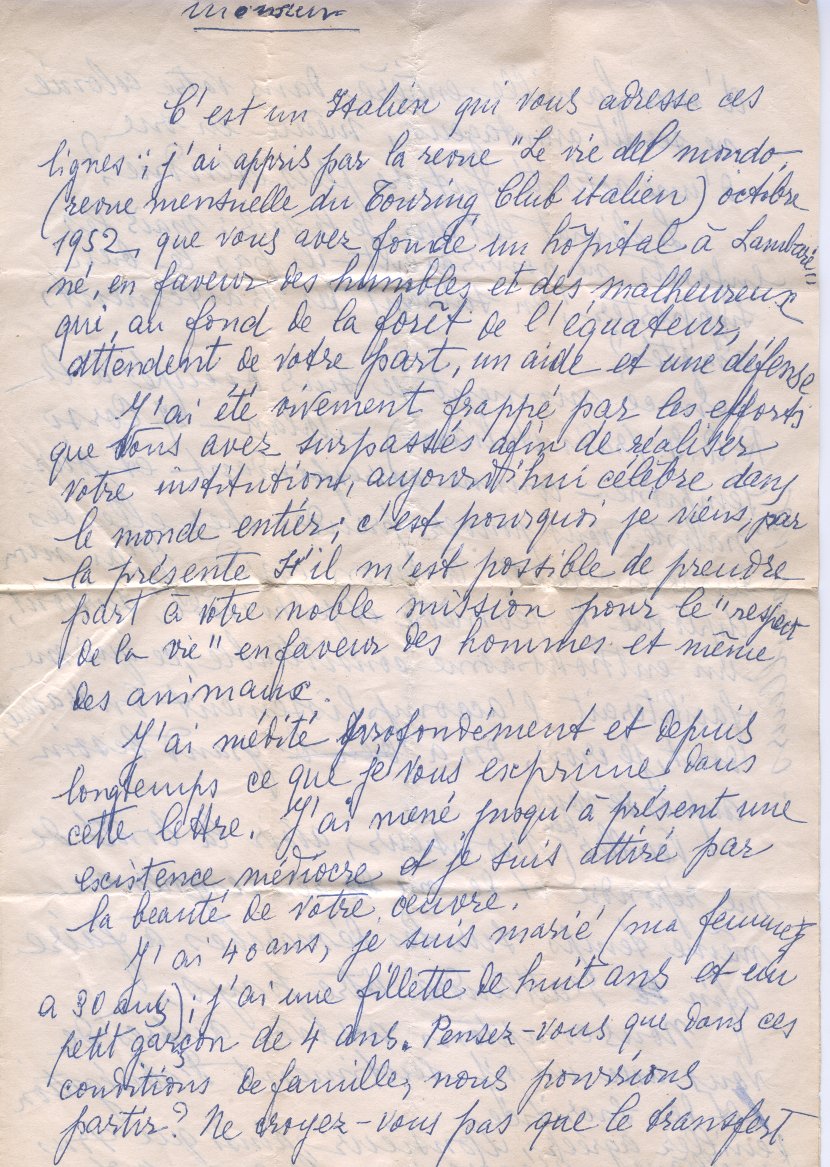 Monsieur
C'est un Italien qui vous adresse ces
lignes; j'ai appris par la revue "Le vie del mondo,
(revue mensuelle du Touring Club italien) octobre
1952, que vous avez fondé un hôpital à Lambaré=
né, en faveur des humbles et des malheureux
qui, au fond de la forêt de l'equateur,
attendent de votre part, un aide et une défense
J'ai été vivement frappé par les efforts
que vous avez surpassés afin de réaliser
votre institution, aujourd'hui célèbre dans
le monde entier; c'est pourquoi je viens, par
la présente s'il m'est possible de prendre
part à votre noble mission pour le "respect
de la vie" en faveur des hommes et même
des animaux.
J'ai médité profondément et depuis
longtemps ce que je vous exprime dans
cette lettre. J'ai mené jusqu'à présent une
existence médiocre et je suis attiré par
la beauté de votre œuvre.
J'ai 40 ans, je suis marié (ma femme
a 30 ans); j'ai une fillette de huit ans et un
petit garçon de 4 ans. Pensez-vous que dans ces
conditions de famille, nous pourrions
partir? Ne croyez-vous pas que le transfert